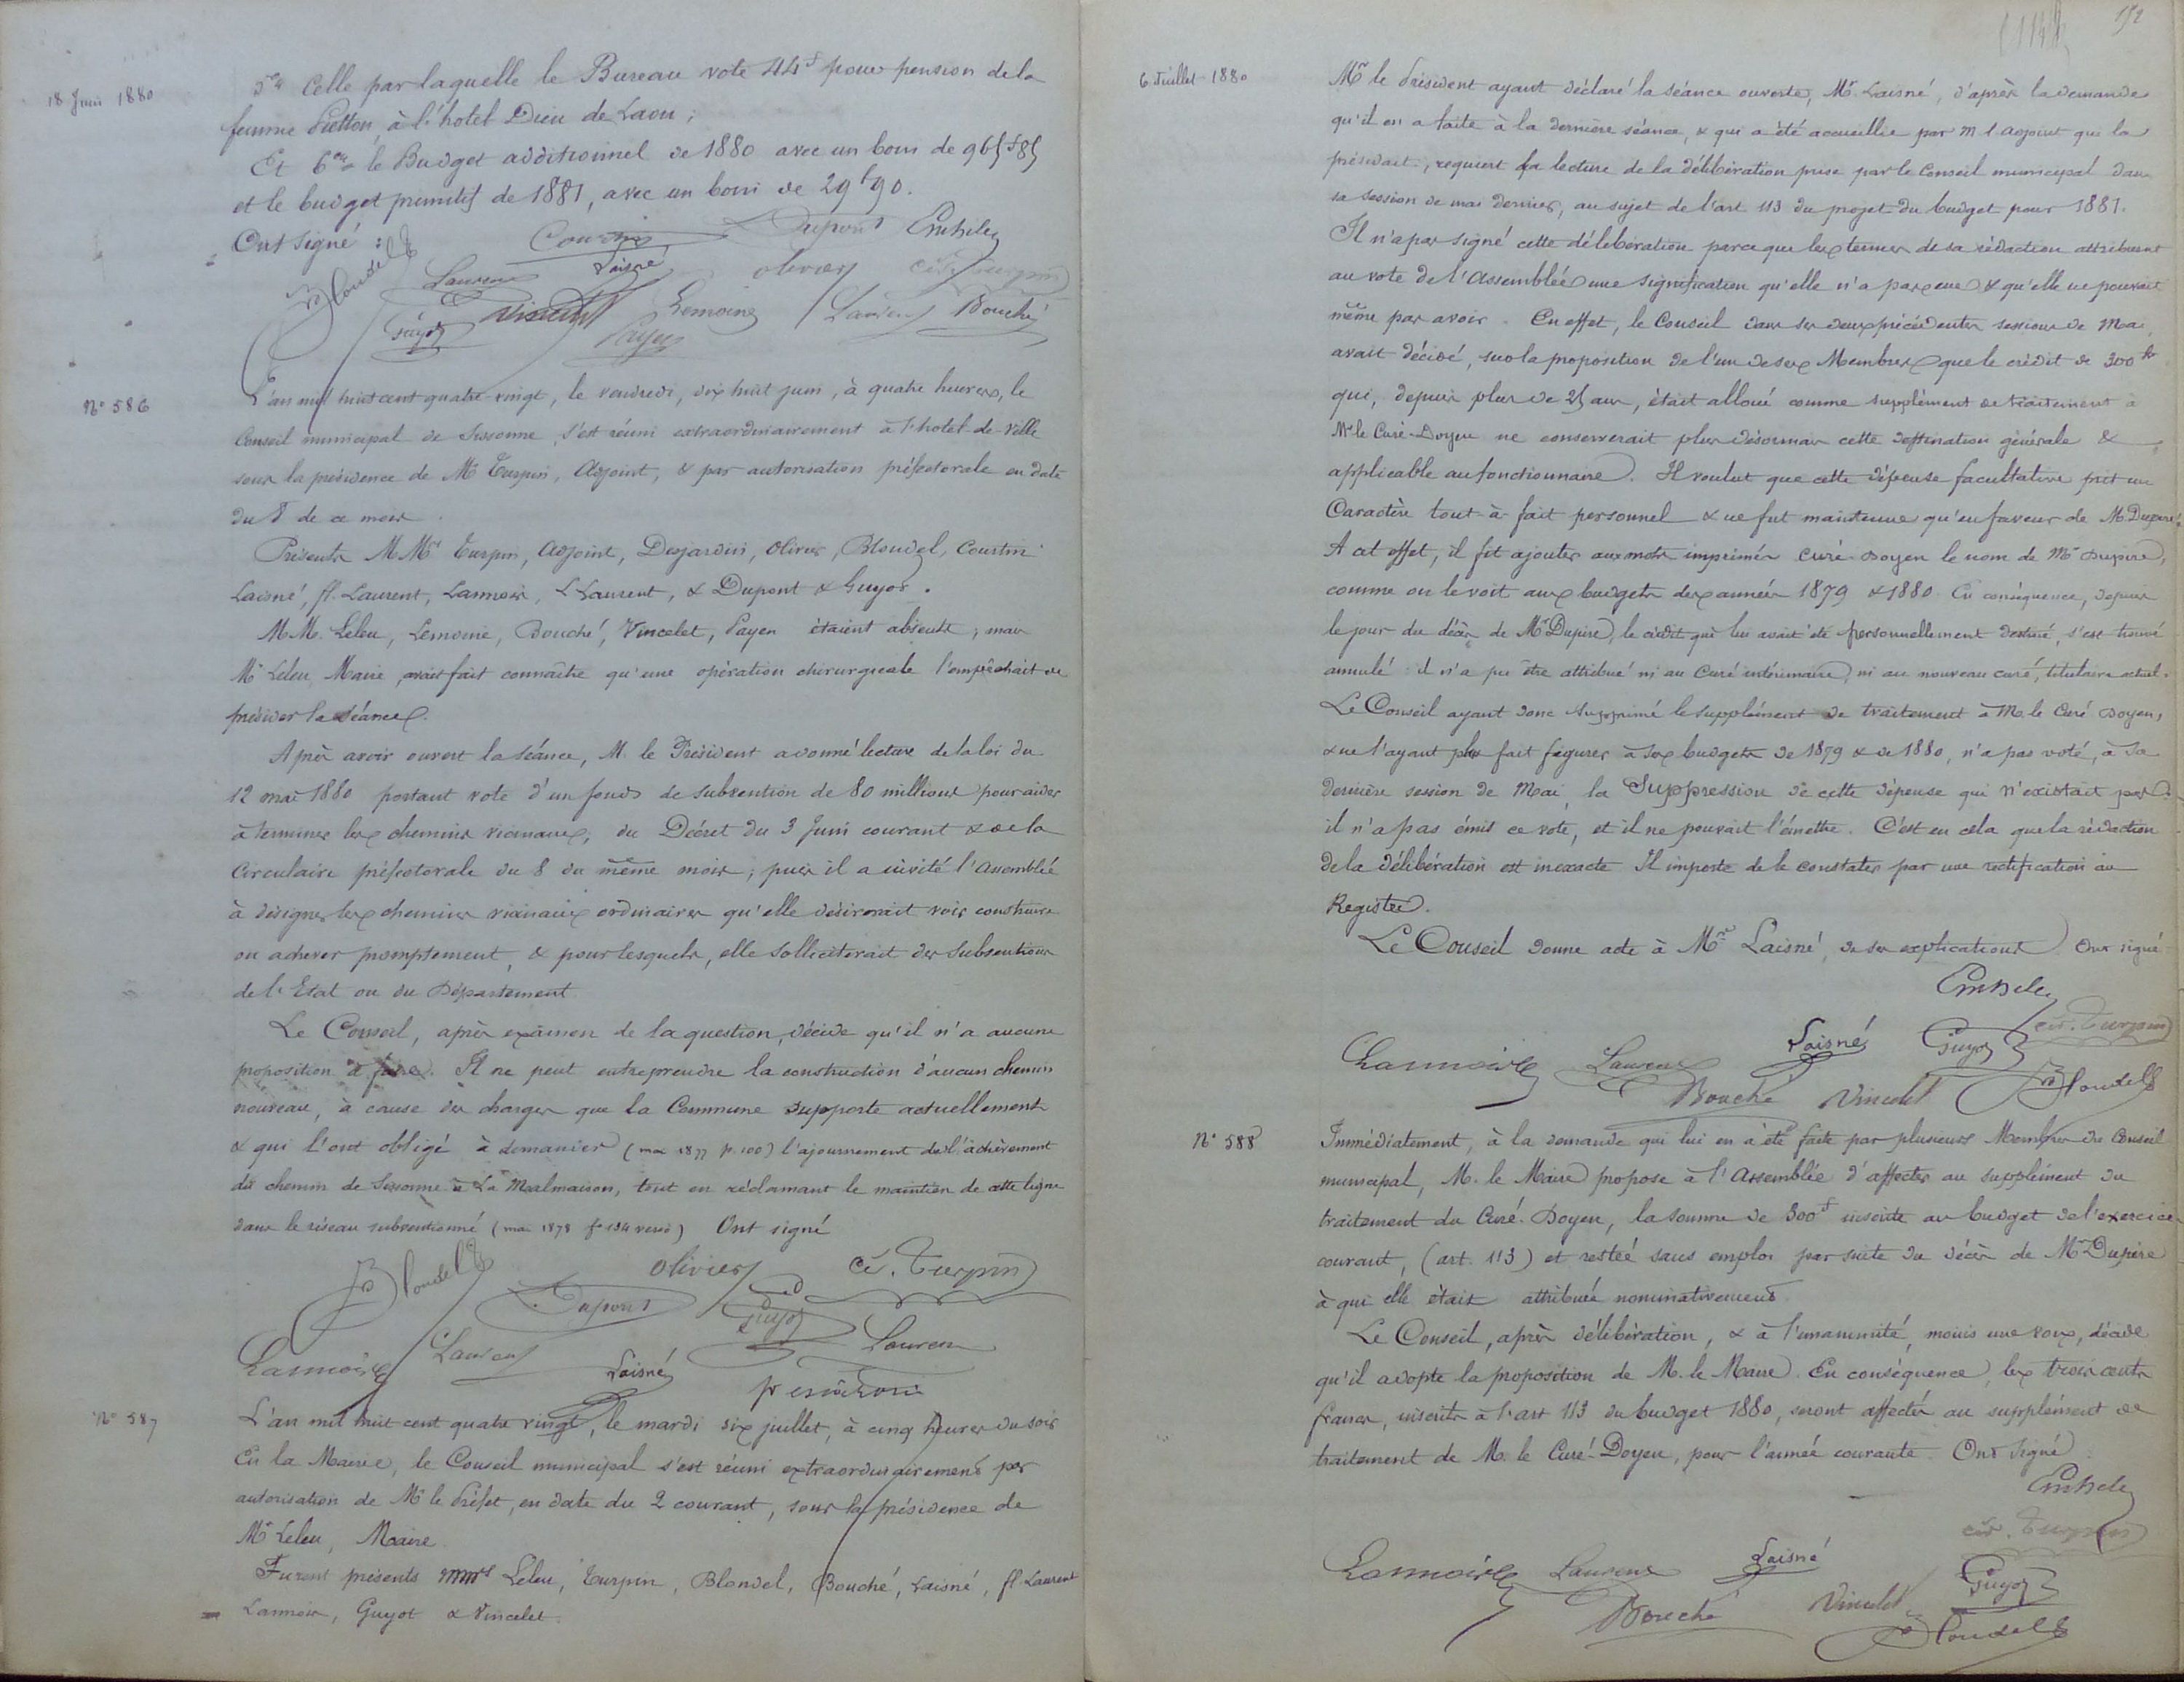 18 Juin 1880
5ent Celle par laquelle le Bureau vote 44f pour pension de la
femme Pietton, à l'hotel Dieu de Laon ;
Et 6ent le Budget additionnel de 1880 avec un boni de 965f85
et le budget primitif de 1881, avec un boni de 29f90.
Ont signé :
Courtin Dupont EmLeleu
Blondel Laurent Laisné Olivier Cér. Turpin
Guyot Vincelet Lemoine Laurent Bouché
Payen
N° 586
L'an mil huit cent quatre-vingt, le vendredi, dix huit juin, à quatre heures, le
Conseil municipal de Sissonne, s'est réuni extraordinairement à l'hotel-de-Ville
sous la présidence de Mr Turpin, Adjoint, & par autorisation préfectorale en date
du 8 de ce mois.
Présents M.Mrs Turpin, Adjoint, Desjardin, Olivier, Blondel, Courtin
Laisné, fl. Laurent, Lannois, L Laurent, & Dupont & Guyot.
M.M. Leleu, Lemoine, Bouché, Vincelet, Payen étaient absents ; mais
Mr Leleu, Maire, avait fait connaître qu'une opération chirurgicale l'empêchait de
présider la séance.
Après avoir ouvert la séance, M. le Président a donné lecture de la loi du
12 mai 1880 portant vote d'un fonds de subvention de 80 millions pour aider
à terminer les chemins vicinaux, du Décret du 3 Juin courant & de la
Circulaire préfectorale du 8 du même mois ; puis il a invité l'Assemblée
à désigner les chemins vicinaux ordinaires qu'elle désirerait voir construire
ou achever promptement, & pour lesquels, elle solliciterait des subventions
de l'Etat ou du Département.
Le Conseil, après examen de la question, décide qu'il n'a aucune
proposition à faire. Il ne peut entreprendre la construction d'aucun chemin
nouveau, à cause des charges que la Commune supporte actuellement
& qui l'ont obligé à demander (mai 1877 p. 100) l'ajournement de l'achèvement
du chemin de Sissonne à La Malmaison, tout en réclamant le maintien de cette ligne
dans le réseau subventionné (mai 1878 fo 134 verso) Ont signé
Blondel Olivier Cér. Turpin
Dupont Guyot
Lannois Laurent Laisné Laurent
N° 587
L'an mil huit cent quatre vingt, le mardi six juillet, à cinq heures du soir
En la Mairie, le Conseil municipal s'est réuni extraordinairement par
autorisation de Mr le Préfet, en date du 2 courant, sous la présidence de
Mr Leleu, Maire.
Furent présents MMrs Leleu, Turpin, Blondel, Bouché, Laisné, fl. Laurent
Lannois, Guyot & Vincelet.
152
6 Juillet 1880
Mr le Président ayant déclaré la séance ouverte, Mr. Laisné, d'après la demande
qu'il en a faite à la dernière séance, & qui a été accueillie par m. l'adjoint qui la
présidait, requiert la lecture de la délibération prise par le Conseil municipal dans
sa session de mai dernier, au sujet de l'art 113 du projet du budget pour 1881.
Il n'a pas signé cette délibération parce que les termes de sa rédaction attribuent
au vote de l'Assemblée une signification qu'elle n'a pas eue & qu'elle ne pouvait
même pas avoir. En effet, le Conseil dans ses deux précédentes sessions de Mai
avait décidé, sur la proposition de l'un de ses Membres que le crédit de 300 fr
qui, depuis plus de 25 ans, était alloué comme supplément de traitement à
Mr le Curé-Doyen ne conserverait plus désormais cette destination générale &
applicable au fonctionnaire. Il voulut que cette dépense facultative prit un
Caractère tout-à-fait personnel & ne fut maintenue qu'en faveur de M. Dupire.
A cet effet, il fit ajouter aux mots imprimés Curé-Doyen le nom de Mr Dupire,
comme on le voit aux budgets des années 1879 & 1880. En conséquence, depuis
le jour du décès de Mr Dupire, le crédit qui lui avait été personnellement destiné, s'est trouvé
annulé : il n'a pu être attribué ni au Curé intérimaire, ni au nouveau curé, titulaire actuel.
Le Conseil ayant donc supprimé le supplément de traitement à M. le Curé Doyen,
& ne l'ayant plus fait figurer à ses budgets de 1879 & de 1880, n'a pas voté, à sa
dernière session de Mai, la Suppression de cette dépense qui n'existait pas :
il n'a pas émis ce vote, et il ne pouvait l'émettre. C'est en cela que la rédaction
de la délibération est inexacte Il importe de le constater par une rectification au
Registre.
Le Conseil donne acte à Mr Laisné, de ses explications. Ont signé
EmLeleu
Lannois Laurent Laisné Guyot Cér. Turpin
Bouché Vincelet Blondel
N° 588
Immédiatement, à la demande qui lui en a été faite par plusieurs Membres du Conseil
municipal, M. le Maire propose à l'Assemblée d'affecter au supplément du
traitement du Curé-Doyen, la somme de 300f inscrite au budget de l'exercice
courant, (art. 113) et restée sans emploi par suite du décès de Mr Dupire
à qui elle était attribuée nominativement.
Le Conseil, après délibération, & à l'unanimité, moins une voix, décide
qu'il adopte la proposition de M. le Maire. En conséquence, les trois cents
francs, inscrits à l'art 113 du budget 1880, seront affectés au supplément de
traitement de M. le Curé-Doyen, pour l'année courante. Ont signé
EmLeleu
Cér. Turpin
Lannois Laurent Laisné Guyot
Bouché Vincelet Blondel